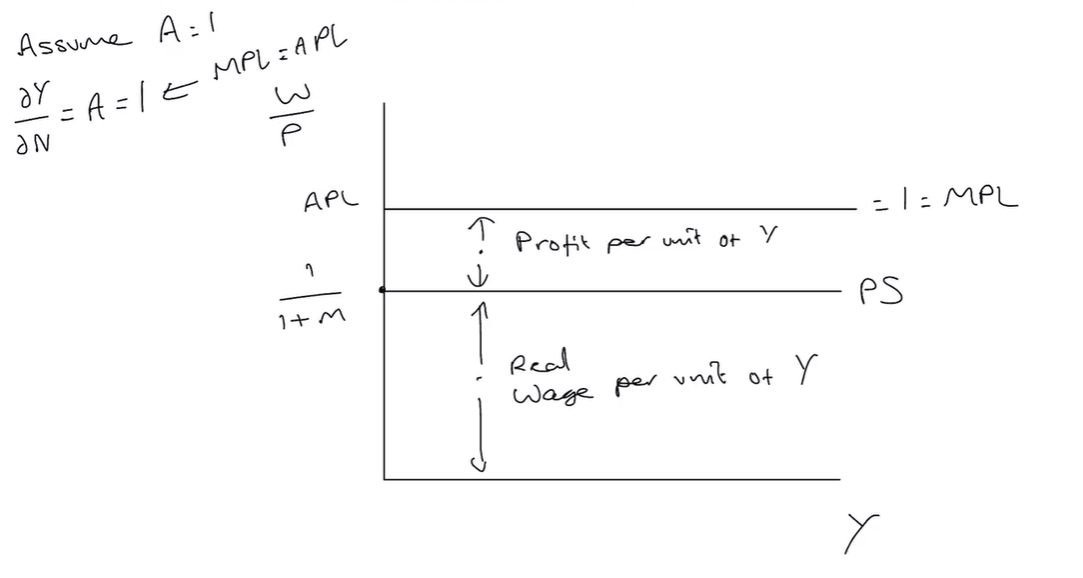 Assume A = 1
∂Y/∂N = A = 1 ⇐ MPL = APL
W/P
APL
= 1 = MPL
Profit per unit of Y
1/1+m
PS
Real
Wage per unit of Y
Y